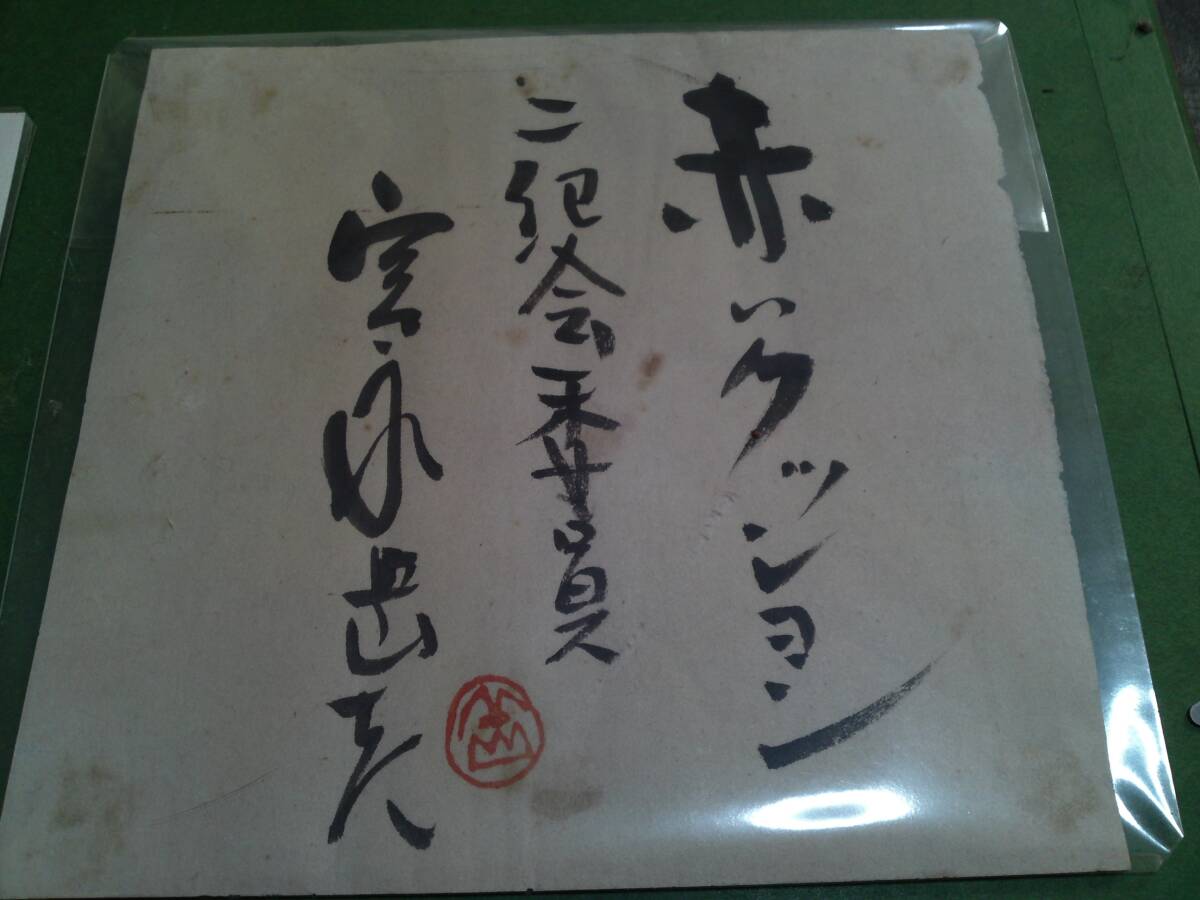 赤いクッション
二紀会委員
宮永岳彦